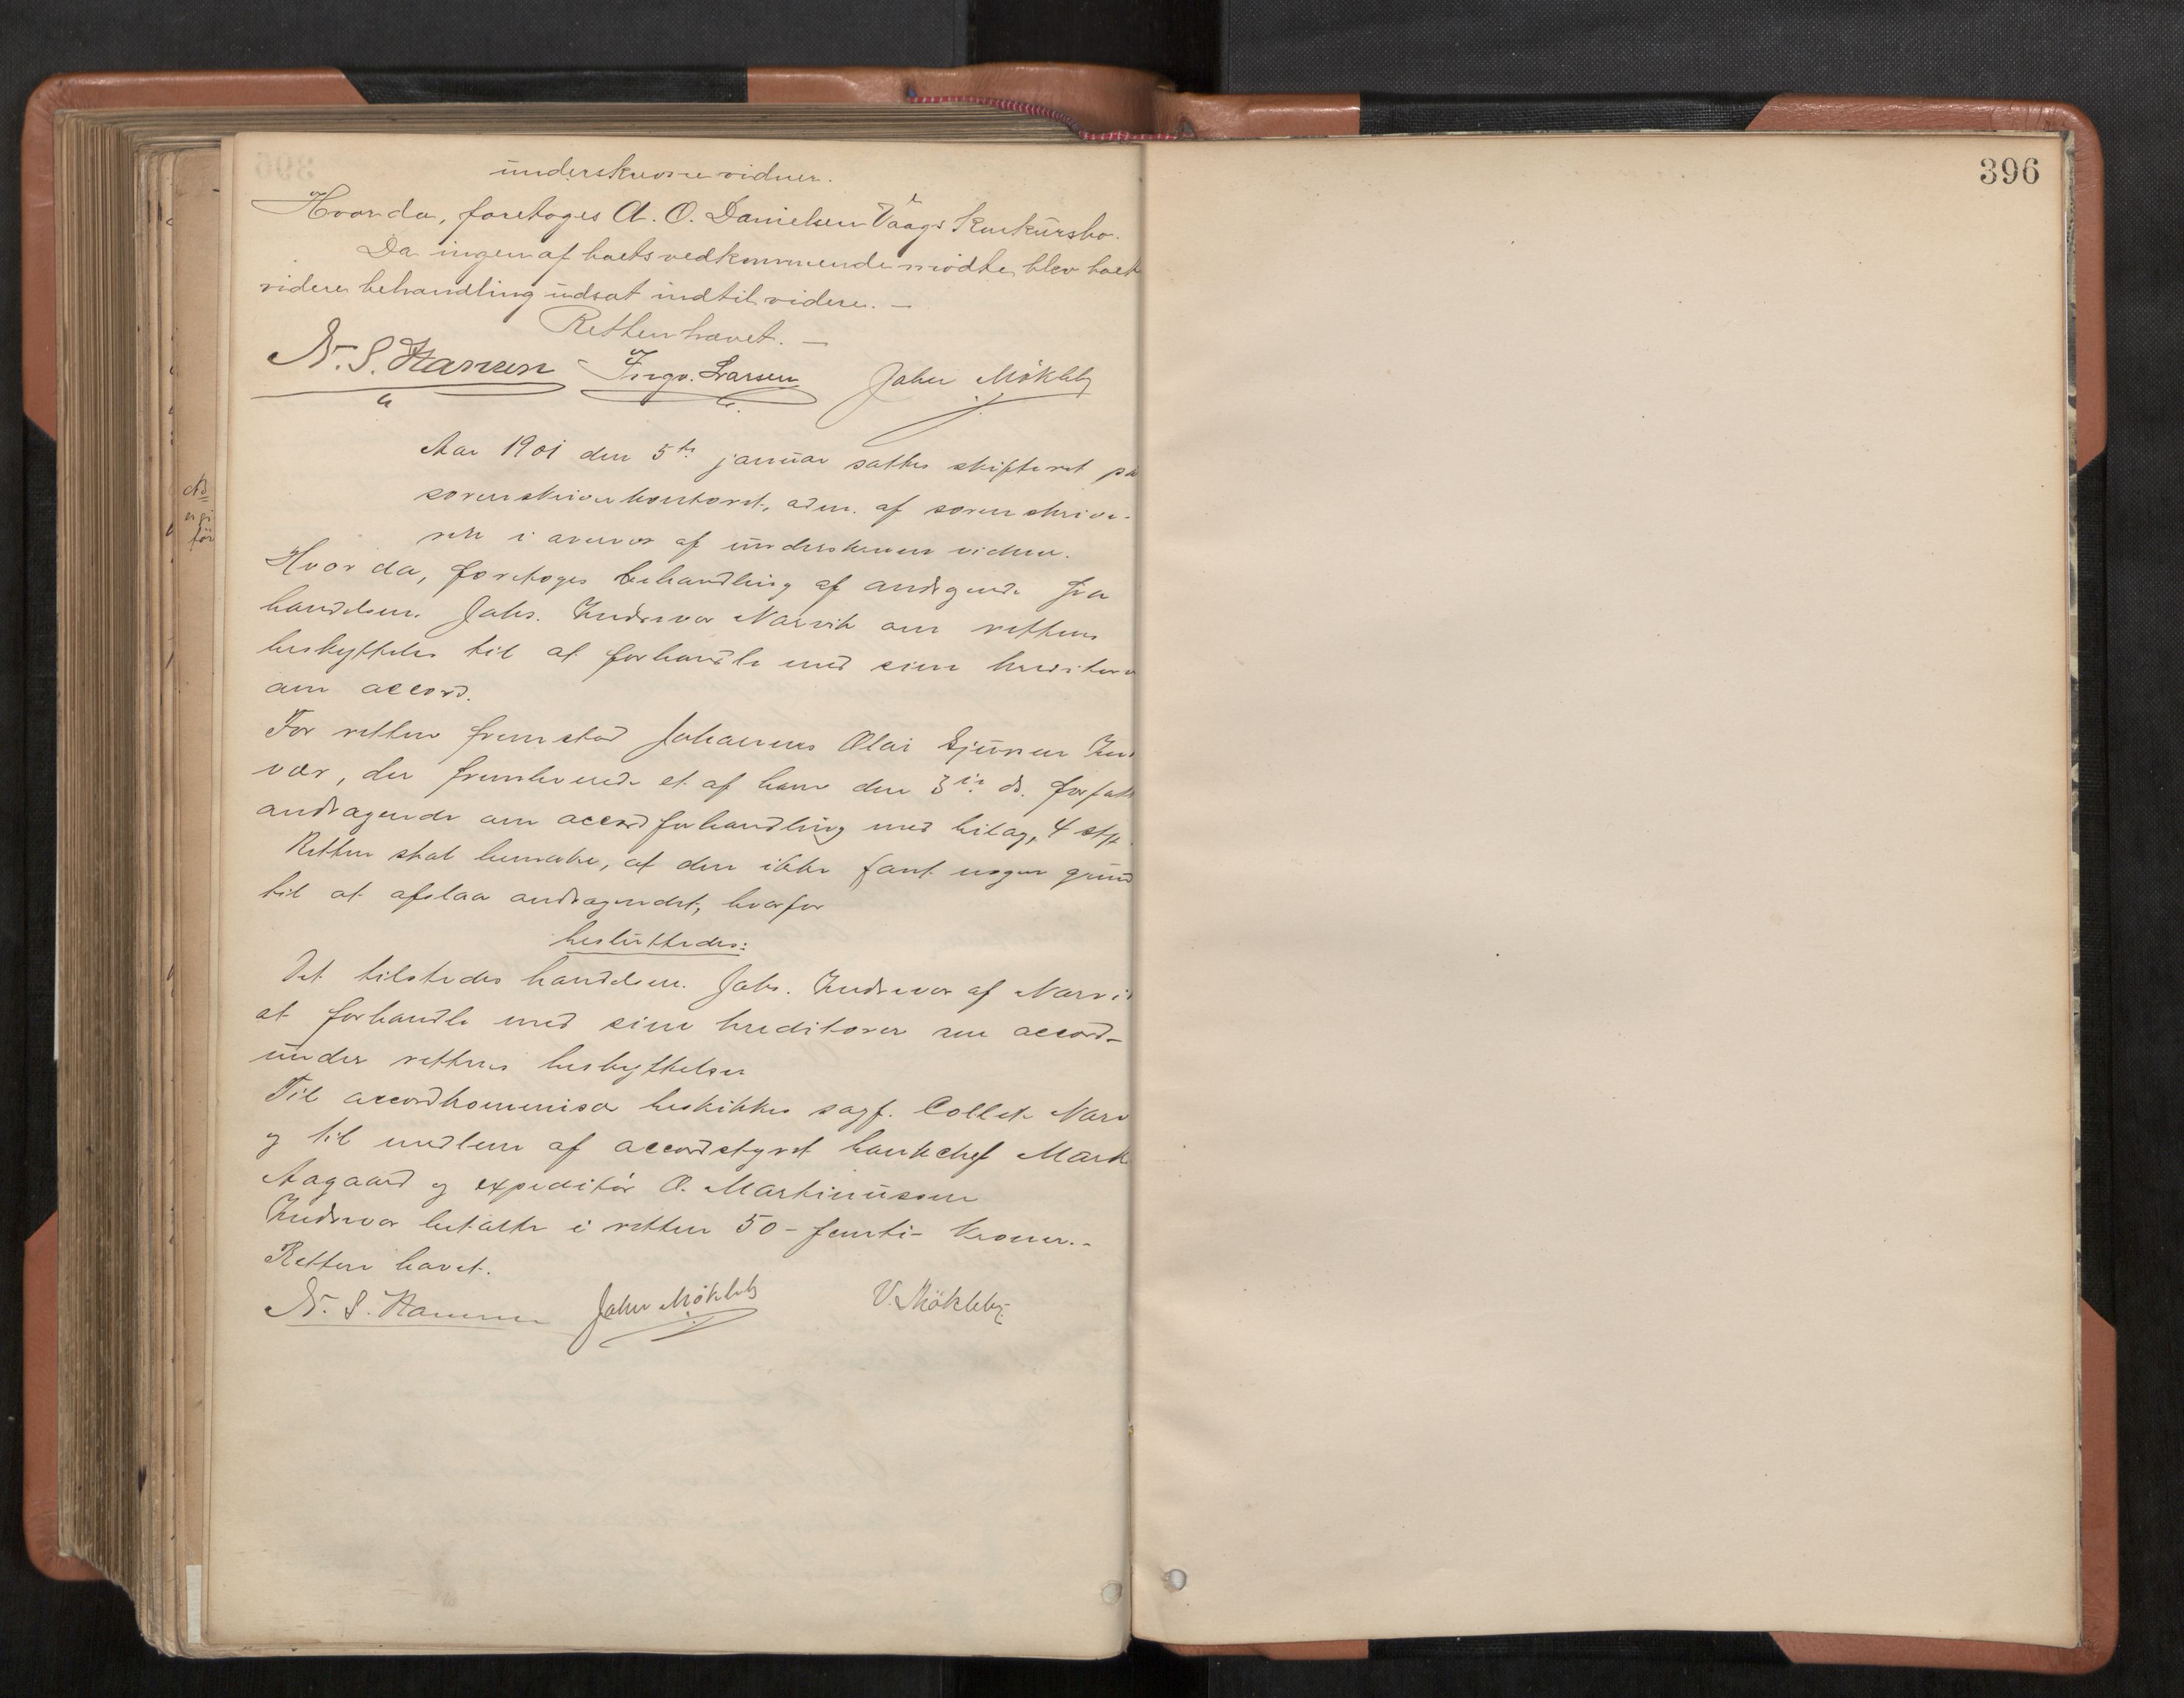 underskrevne vidner.
Hvorda, foretoges A. O. Danielsen Vaags Konkursbo.
Da ingen af boets vedkommende mødte, blev boet
videre behandling udsat indtil videre. —
Retten hævet. —
N. S. Hansen Ingv. Larsen Joher Mökleby
Aar 1901 den 5te januar sattes skifteret på
sorenskriverkontoret, adm. af sorenskrive-
ren i overvær af underskrevne vidner.
Hvor da, foretoges behandling af andragende fra
handelsm. Johs. Indrevær Narvik om rettens
beskyttelse til at forhandle med sine kreditorer
om accord.
For retten fremstod Johannes Olai Sjursen Ind
vær, der fremleverede et af ham den 3die ds. forfatt
andragende om accordforhandling med bilag, 4 stk.
Retten skal bemærke, at den ikke fant nogen grund
til at afslaa andragendet, hvorfor
besluttedes:
Det tilstedes handelsm. Johs. Indrevær af Narvi
at forhandle med sine kreditorer om accord-
under rettens beskyttelse
Til accordkommisær beskikkes sagf. Collett Narv
og til medlem af accordstyret bankchef Mark
Aagaard og expeditör O. Martinussen
Indrevær betalte i retten 50 - femti - kroner. -
Retten hævet.
N. S. Hansen Joher Mökleby V. Mökleby
396